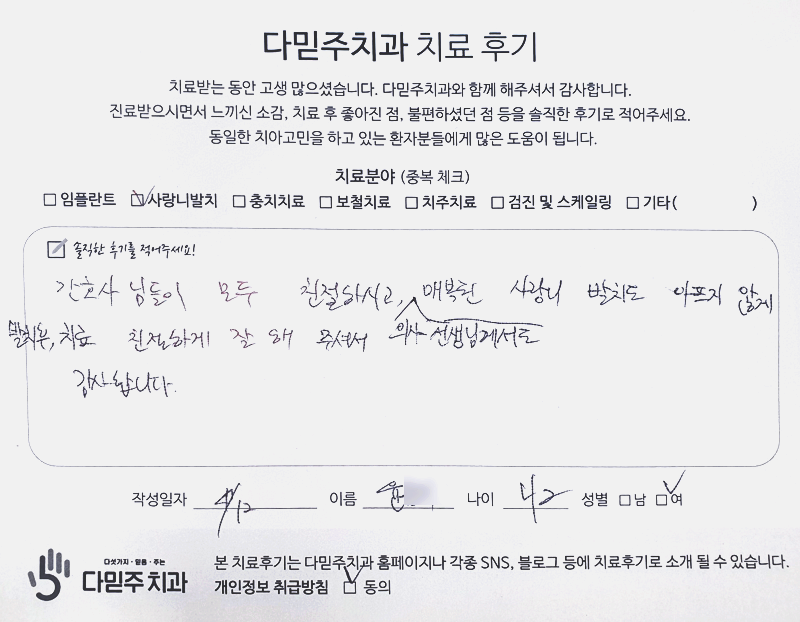 다믿주치과 치료 후기
치료받는 동안 고생 많으셨습니다. 다믿주치과와 함께 해주셔서 감사합니다.
진료받으시면서 느끼신 소감, 치료 후 좋아진 점, 불편하셨던 점 등을 솔직한 후기로 적어주세요.
동일한 치아고민을 하고 있는 환자분들에게 많은 도움이 됩니다.
치료분야 (중복 체크)
임플란트 사랑니발치 충치치료 보철치료 치주치료 검진 및 스케일링 기타( )
솔직한 후기를 적어주세요!
간호사님들이 모두 친절하시고, 매복된 사랑니 발치도 아프지 않게
치료 친절하게 잘 해 주셔서 의사 선생님께서도
감사합니다.
작성일자 4/12 이름 윤 나이 42 성별 남 여
다섯가지·믿음·주는
다믿주치과
본 치료후기는 다믿주치과 홈페이지나 각종 SNS, 블로그 등에 치료후기로 소개 될 수 있습니다.
개인정보 취급방침 동의